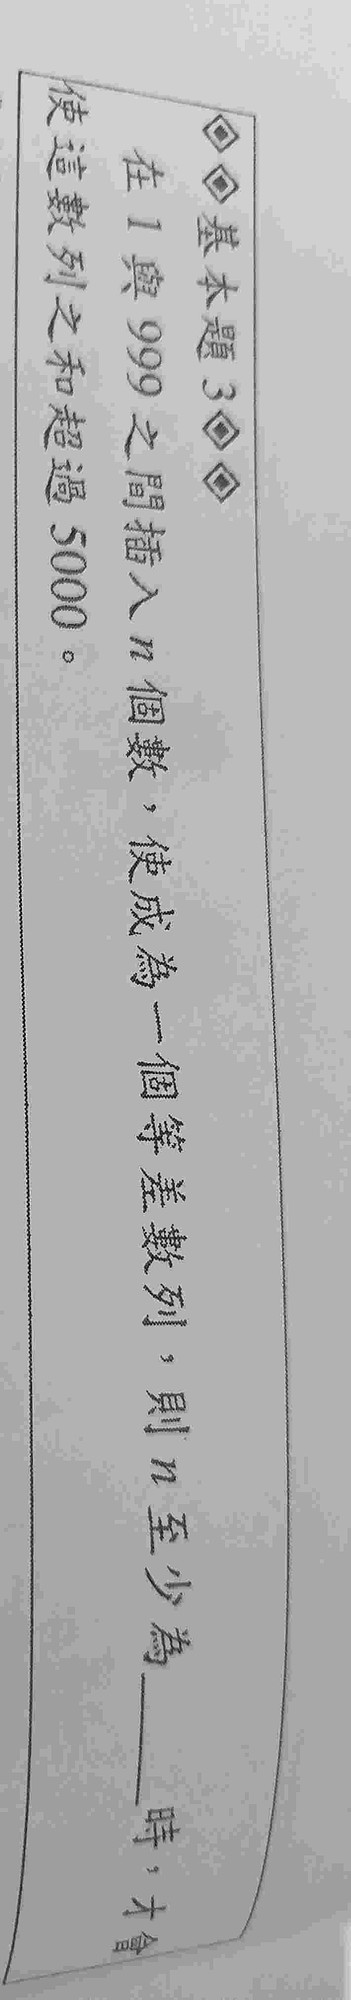 ◈◈基本題3◈◈
在1與999之間插入n個數，使成為一個等差數列，則n至少為____時，才會
使這數列之和超過5000。